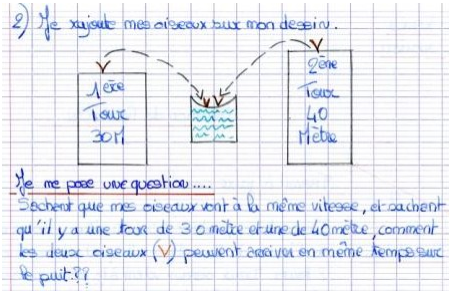 2) Je rajoute mes oiseaux sur mon dessin.
1ère
Tour
30M
2ème
Tour
40
Mètre
Je me pose une question....
Sachant que mes oiseaux vont à la même vitesse, et sachant
qu'il y a une tour de 30 mètre et une de 40 mètre, comment
les deux oiseaux (V) peuvent arriver en même temps sur
le puit.??